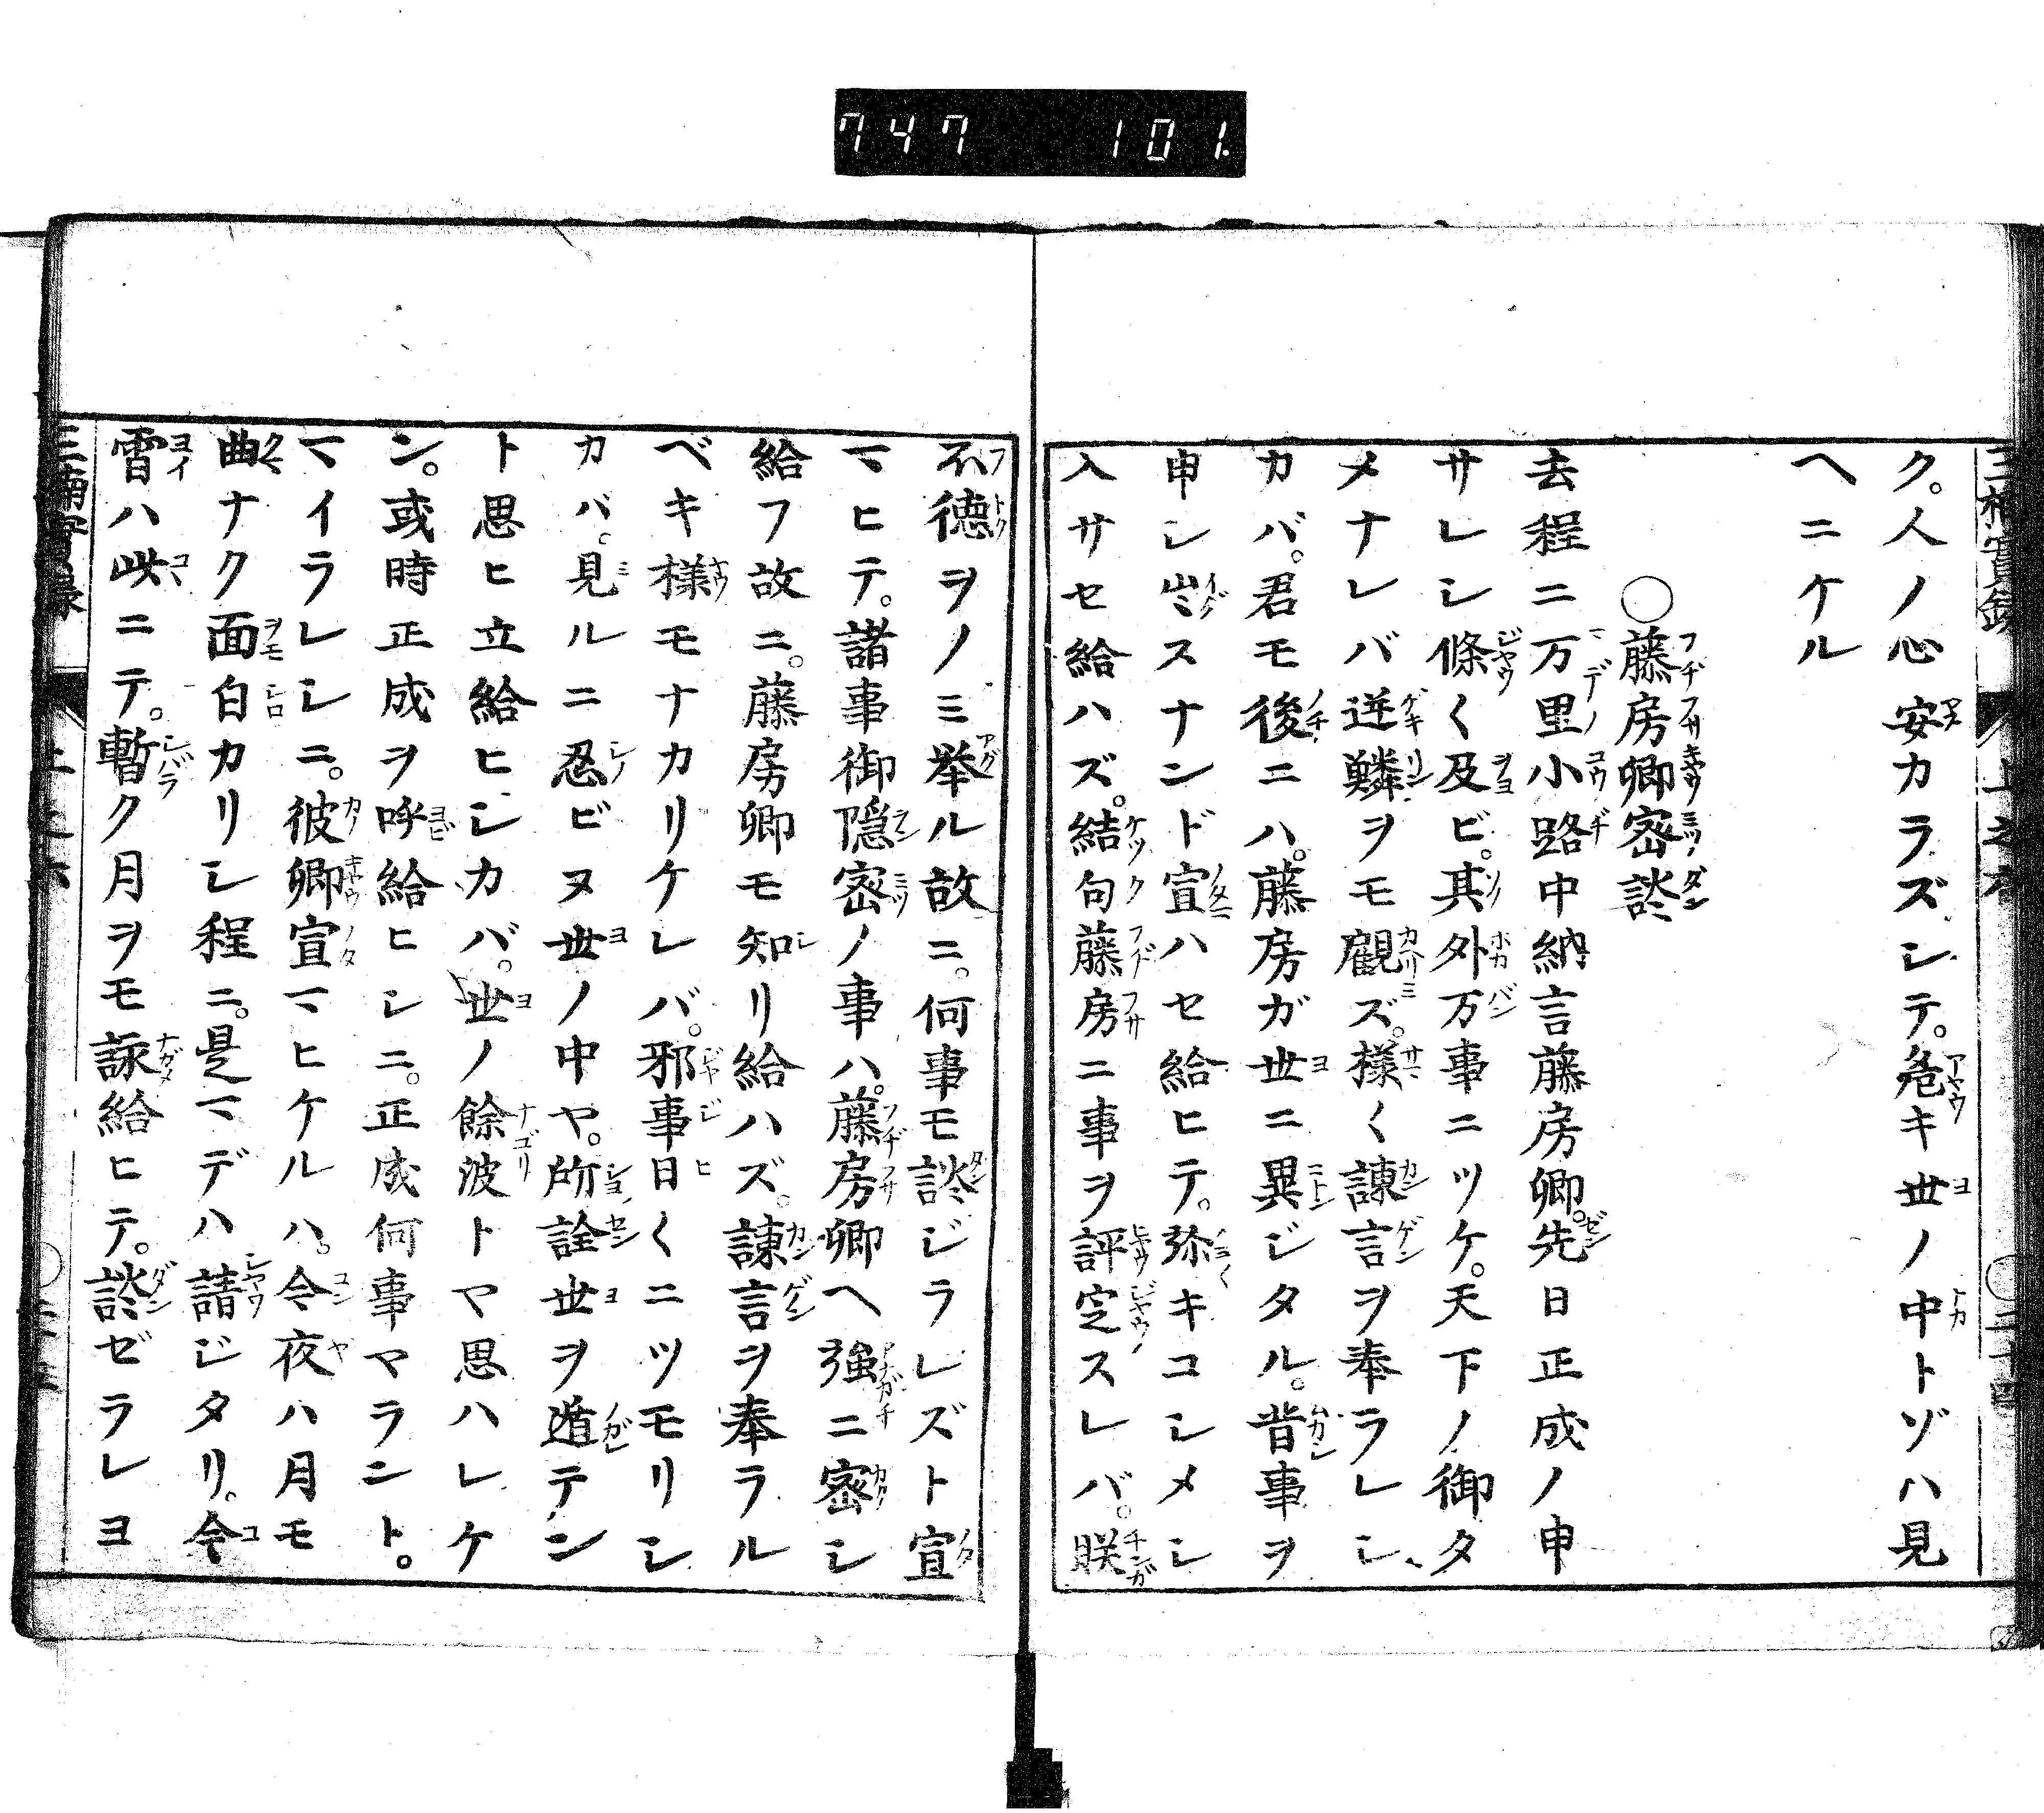 747 101.
ク。人ノ心安カラズシテ。危キ世ノ中トゾハ見
ヘニケル
○藤房卿密談
去程ニ万里小路中納言藤房卿。先日正成ノ申
サレシ條〱及ビ。其外万事ニツケ。天下ノ御タ
メナレバ逆鱗ヲモ顧ズ。様〱諫言ヲ奉ラレシ
カバ。君モ後ニハ。藤房ガ世ニ異ジタル。昔事ヲ
申シ出スナンド宣ハセ給ヒテ。弥キコシメシ
入サセ給ハズ。結句藤房ニ事ヲ評定スレバ。朕
不徳ヲノミ挙ル故ニ。何事モ談ジラレズト宣
マヒテ。諸事御隠密ノ事ハ。藤房卿ヘ強ニ密シ
給フ故ニ。藤房卿モ知リ給ハズ。諫言ヲ奉ラル
ベキ様モナカリケレバ。邪事日〱ニツモリシ
カバ。見ルニ忍ビヌ世ノ中ヤ。所詮世ヲ遁テン
ト思ヒ立給ヒシカバ。世ノ餘波トヤ思ハレケ
ン。或時正成ヲ呼給ヒシニ。正成何事マラント。
マイラレシニ。彼卿宣マヒケルハ。今夜ハ月モ
曲ナク面白カリシ程ニ。是マデハ請ジタリ。今
宵ハ此ニテ。暫ク月ヲモ詠給ヒテ。談ゼラレヨ